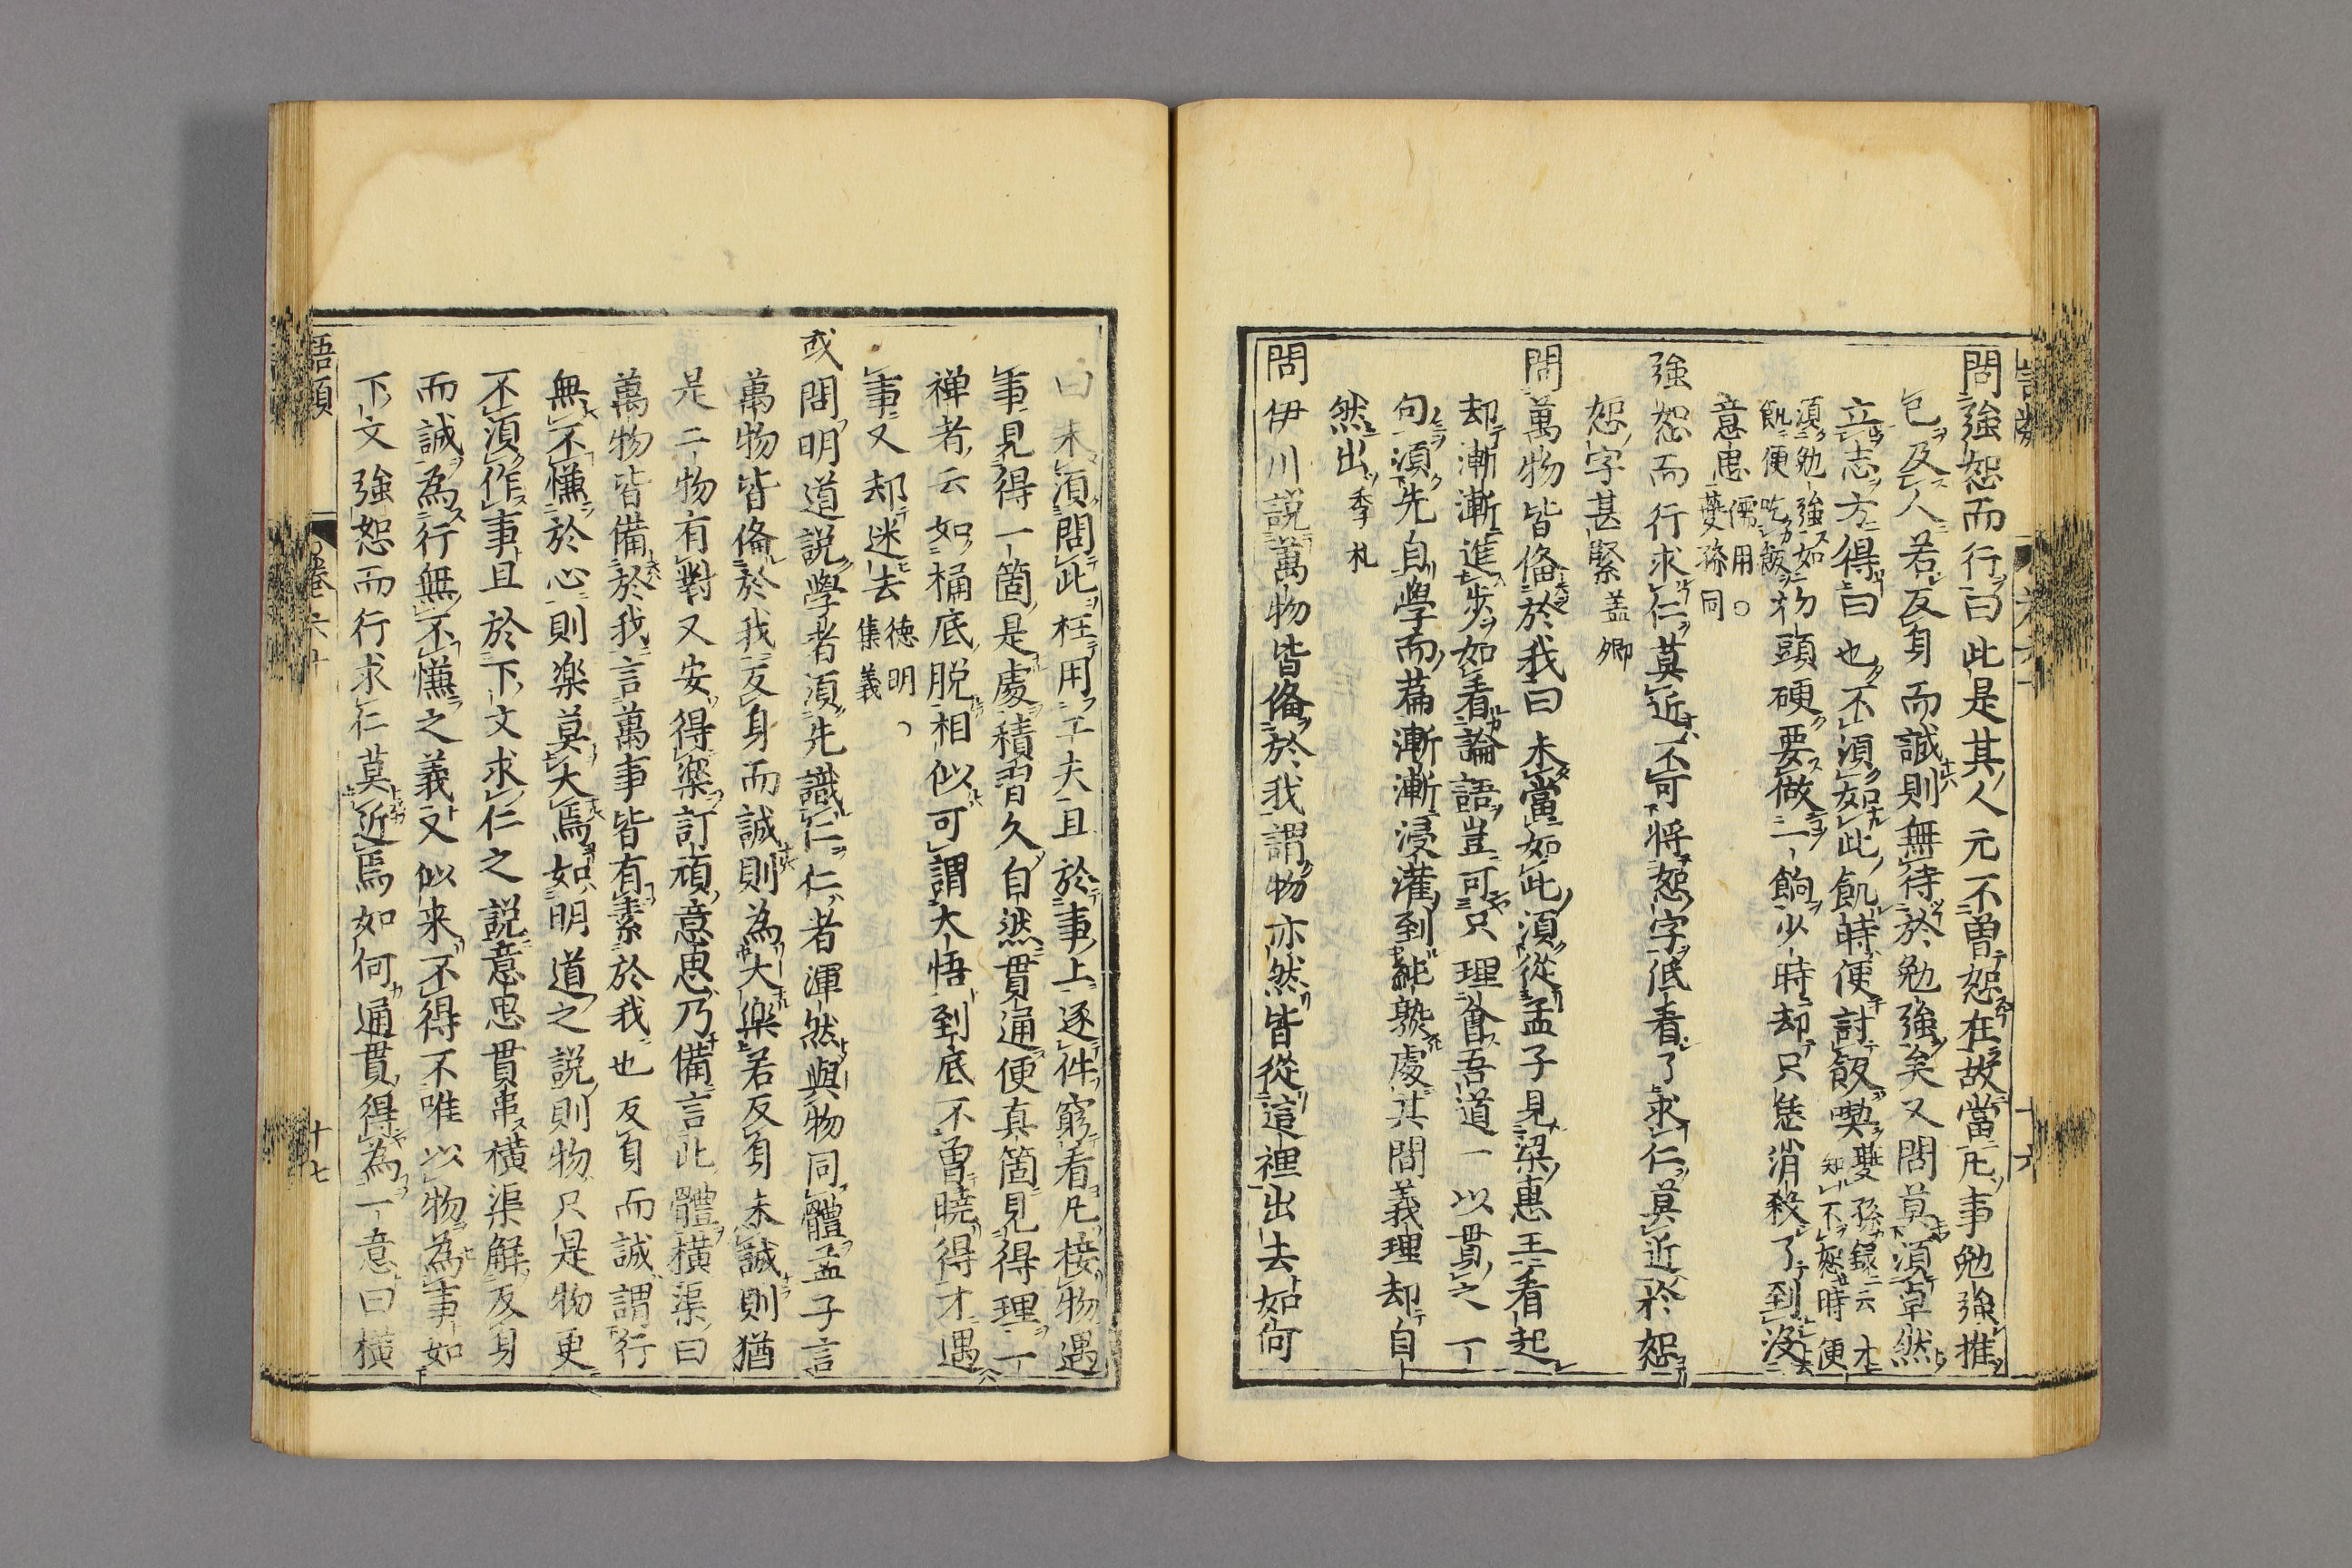 問強恕而行曰此是其人元不曾恕在故當凡事勉強推
己及人若反身而誠則無待於勉強矣又問莫須卓然
立志方得曰也不須如此飢時便討飯喫夔孫錄云才知不恕時便
須勉強如飢便吃飯初頭硬要做一餉少時却只恁消殺了到沒
意思僩用○夔孫同
強恕而行求仁莫近不可將恕字低看了求仁莫近於恕
恕字甚緊蓋卿
問萬物皆俻於我曰未當如此須從孟子見梁惠王看起
却漸漸進步如看論語豈可只理會吾道一以貫之一
句須先自學而篇漸漸浸灌到純熟處其間義理却自
然出季札
問伊川說萬物皆俻於我謂物亦然皆從這裡出去如何
曰未須問此枉用工夫且於事上逐件窮看凡接物遇
事見得一箇是處積習久自然貫通便真箇見得理一
禅者云如桶底脱相似可謂大悟到底不曾曉得才遇
事又却迷去德明 集義
或問明道說學者須先識仁仁者渾然與物同體孟子言
萬物皆俻於我反身而誠則為大樂若反身未誠則猶
是二物有對又安得楽訂頑意思乃備言此體橫渠曰
萬物皆備於我言萬事皆有素於我也反身而誠謂行
無不慊於心則楽莫大焉如明道之說則物只是物更
不須作事且於下文求仁之說意思貫串橫渠解反身
而誠為行無不慊之義又似来不得不唯以物為事如
下文強恕而行求仁莫近焉如何通貫得為一意曰橫
語類 卷六十 十七